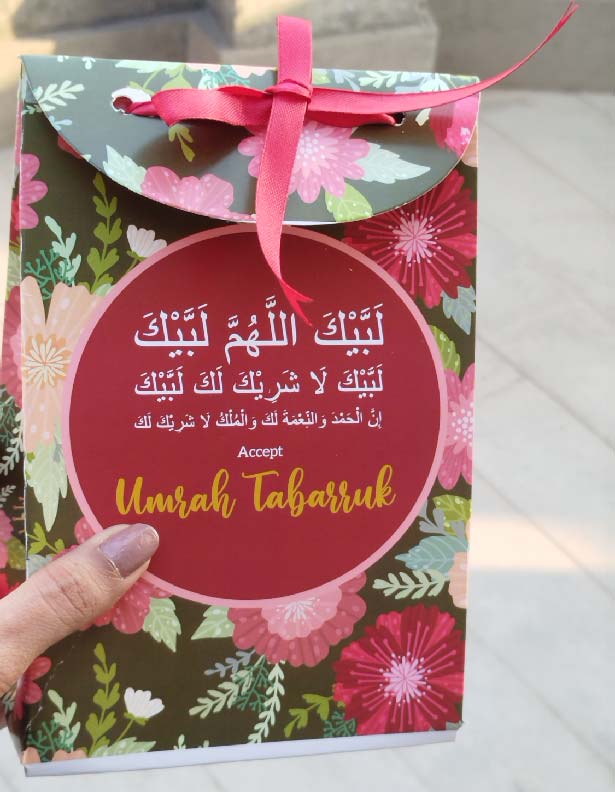 لَبَّيْكَ اللَّهُمَّ لَبَّيْكَ
لَبَّيْكَ لَا شَرِيْكَ لَكَ لَبَّيْكَ
اِنَّ الْحَمْدَ وَالنِّعْمَةَ لَكَ وَالْمُلْكُ لَا شَرِيْكَ لَكَ
Accept
Umrah Tabarruk